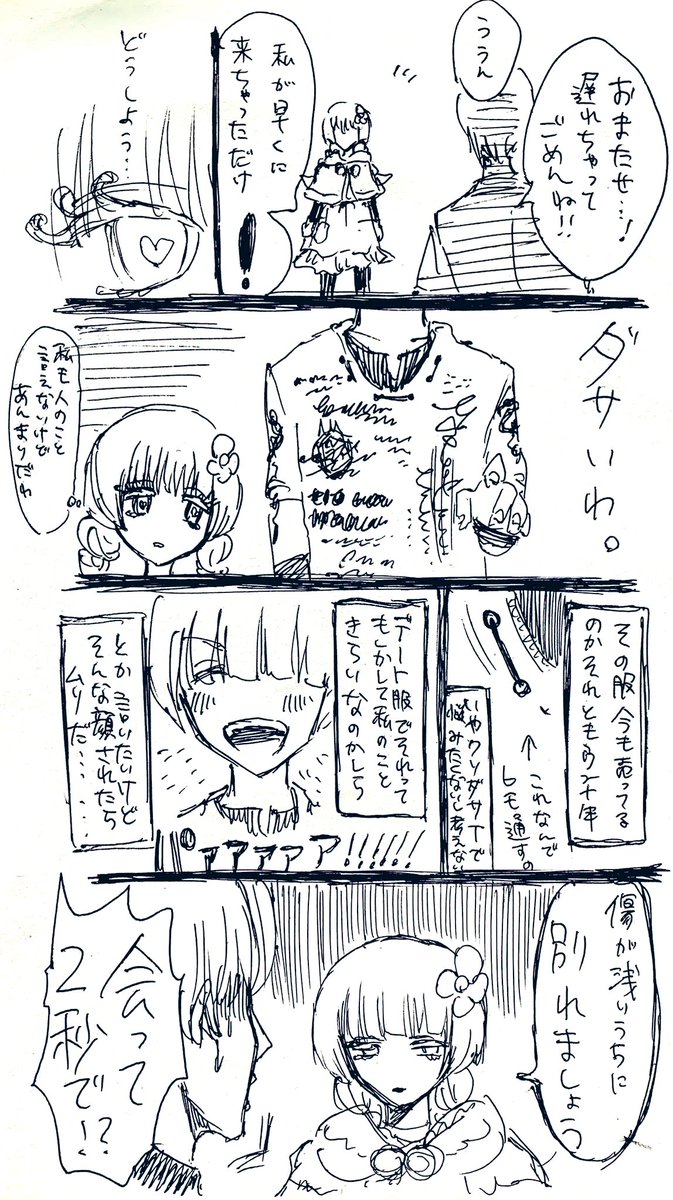 おまたせ…!
遅れちゃって
ごめんね!!
ううん
私が早くに
来ちゃっただけ
!
どうしよう…
ダサいわ。
私も人のこと
言えないけど
あんまりだわ
その服今も売ってる
のかそれとも
←これなんで
ヒモ通すの
いやクソダサTで
悩みたくないし考えない
デート服でそれって
もしかして私のこと
きらいなのかしら
パァアアアア!!!!!!
とか言いたいけど
そんな顔されたら
ムリだ……
傷が浅いうちに
別れましょう
会って
2秒で!?